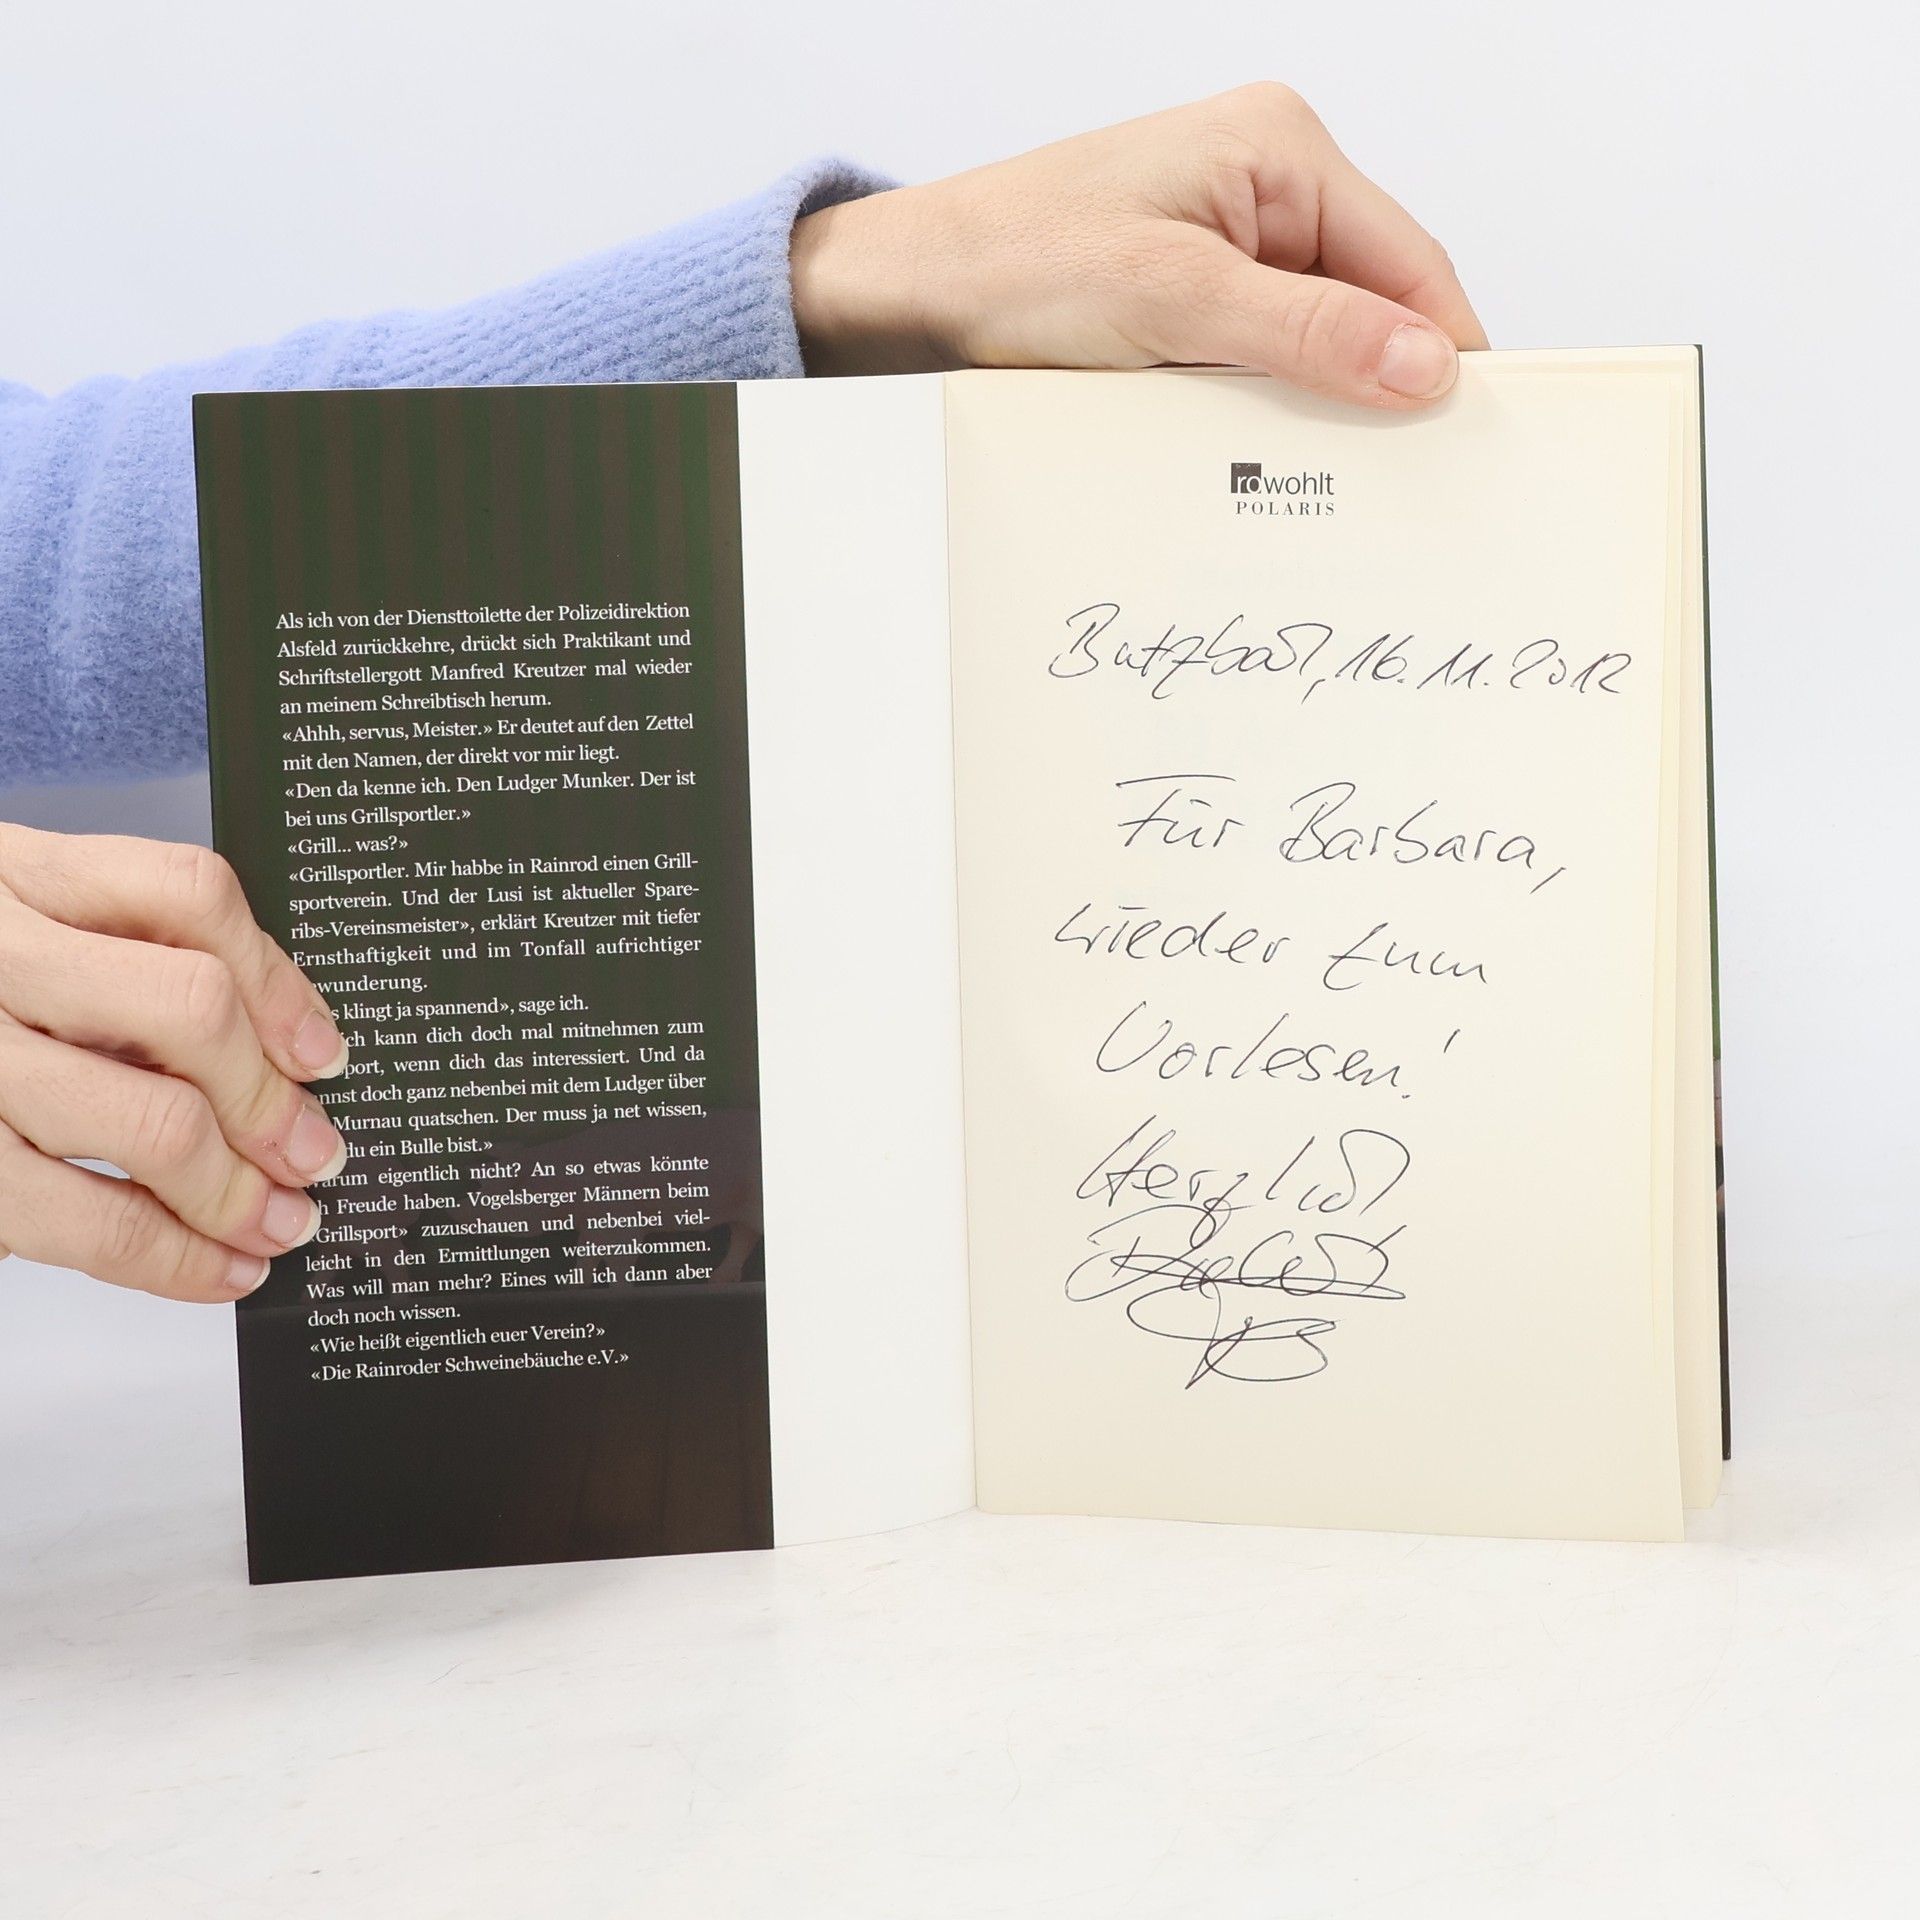 Als ich von der Diensttoilette der Polizeidirektion
Alsfeld zurückkehre, drückt sich Praktikant und
Schriftstellergott Manfred Kreutzer mal wieder
an meinem Schreibtisch herum.
«Ahhh, servus, Meister.» Er deutet auf den Zettel
mit den Namen, der direkt vor mir liegt.
«Den da kenne ich. Den Ludger Munker. Der ist
bei uns Grillsportler.»
«Grill... was?»
«Grillsportler. Mir habbe in Rainrod einen Grill-
sportverein. Und der Lusi ist aktueller Spare-
ribs-Vereinsmeister», erklärt Kreutzer mit tiefer
Ernsthaftigkeit und im Tonfall aufrichtiger
wunderung.
klingt ja spannend», sage ich.
ich kann dich doch mal mitnehmen zum
port, wenn dich das interessiert. Und da
nnst doch ganz nebenbei mit dem Ludger über
Murnau quatschen. Der muss ja net wissen,
du ein Bulle bist.»
arum eigentlich nicht? An so etwas könnte
h Freude haben. Vogelsberger Männern beim
«Grillsport» zuzuschauen und nebenbei viel-
leicht in den Ermittlungen weiterzukommen.
Was will man mehr? Eines will ich dann aber
doch noch wissen.
«Wie heißt eigentlich euer Verein?»
«Die Rainroder Schweinebäuche e.V.»
rowohlt
POLARIS
Butzbach, 16.11.2012
Für Barbara,
wieder zum
Vorlesen!
Herzlich